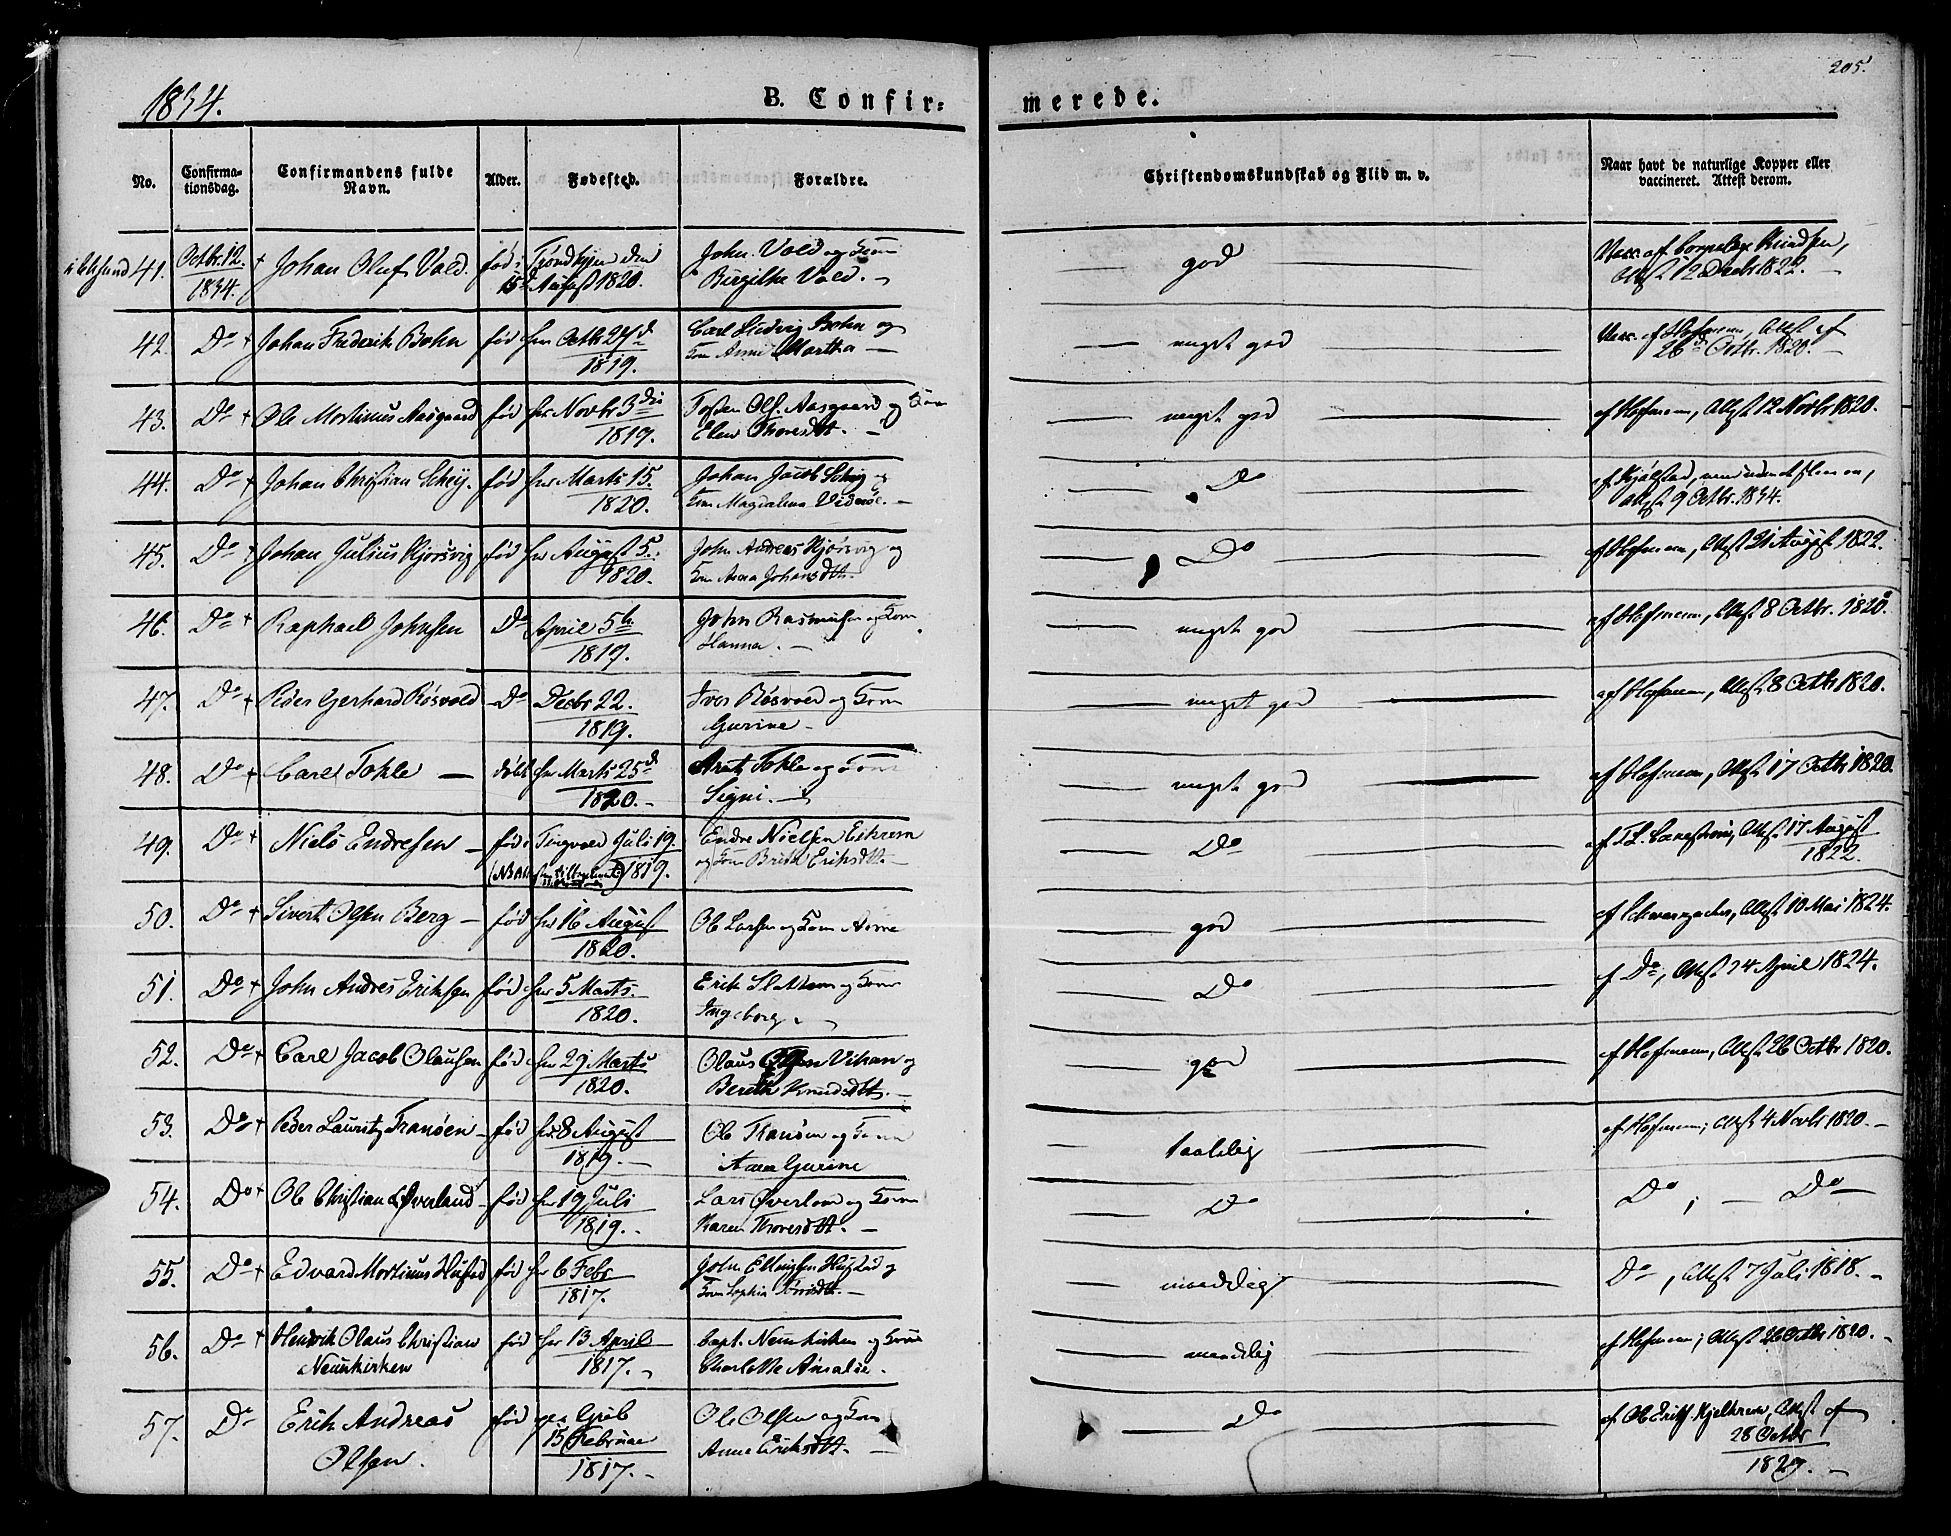 205.
1834.
B. Confir=
merede.
No.
Confirma-
tionsdag.
Confirmandens fulde
Navn.
Alder.
Fødested.
Forældre.
Christendomskundskab og Flid m. v.
Naar havt de naturlige Kopper eller
vaccineret. Attest derom.
41. Octbr. 12. 1834. Johan Oluf Vold. fød i Trondhjem den 15 August 1820. John Vold og Kone Birgitha Vold. god Attest 12 Decbr 1822.
42. Do Johan Frederik Bohn fød her Octbr 27 1819. Carl Ludvig Bohn og Kone Anne Martha meget god Vacc. af Hofmann, Attest af 26 Octbr. 1820.
43. Do Ole Mortinus Aasgaard fød her Novbr 3 1819. Ols. Aasgaard og Kone Elen Thoresdtt. meget god af Hofmann, Attest 12 Novbr 1820.
44. Do Johan Christian Schey. fød her Marts 15. 1820. Johan Jacob Schey og Kone Magdalena Do Attest 9 Octbr. 1834.
45. Do Johan Julius Kjørsvig fød her August 5. 1820. John Andreas Kjørsvig og Kone Anna Johansdtt. Do af Hofmann, Attest 21 August 1822.
46. Do Raphael Johnsen Do April 5 1819. John Rasmussen og Kone Hanna. meget god af Hofmann, Attest 8 Octbr. 1820.
47. Do Gerhard Røsvold Do Decbr 22. 1819. Iver Røsvold og Kone Gurine meget god af Hofmann, Attest 8 Octbr 1820.
48. Do Carl Tohle døbt her Marts 25 1820. Tohle og Kone Signi. meget god af Hofmann, Attest 17 Octbr 1820.
49. Do Niels Endresen fød i Tingvold Juli 19. 1819. Endre Nielsen Eikrem og Kone Brith Eriksdtt. Do Attest 17 August 1822.
50. Do Sivert Olsen Berg fød her 16 August 1820. Ole Larsen og Kone Anne god Attest 10 Mai 1824.
51. Do John Andres Eriksen fød her 5 Marts. 1820. Erik og Kone Ingeborg. Do af Do, Attest 24 April 1824.
52. Do Carl Jacob Olausen fød her 29 Marts 1820. Olaus Olsen Vikan og Bereth Knudsdtt. god af Hoffmann, Attest 26 Octbr 1820.
53. Do Peder Lauritz Franøen fød her 8 August 1819. Ole Franøen og Kone Anne Gurine taalelig af Hofmann; Attest 4 Novbr 1820.
54. Do Ole Christian Øverland fød her 19 Juli 1819. Lars Øverland og Kone Karen Thoresdtt. Do Do; Do
55. Do Edvard Mortinus Hustad fød her 6 Febr 1817. John Ellingsen Hustad og Kone Sophia maadelig Do, Attest 7 Juli 1818.
56. Do Hendrik Olaus Christian Neumkirken fød her 13 April 1817. Capt. Neumkirken og Kone Charlotte Amalie. maadelig af Hofmann; Attest 26 Octbr 1820.
57. Do Erik Andreas Olsen. fød 15 Februar 1817. Ole Olsen og Kone Anne Eriksdtt. Do Attest af 28 Octbr